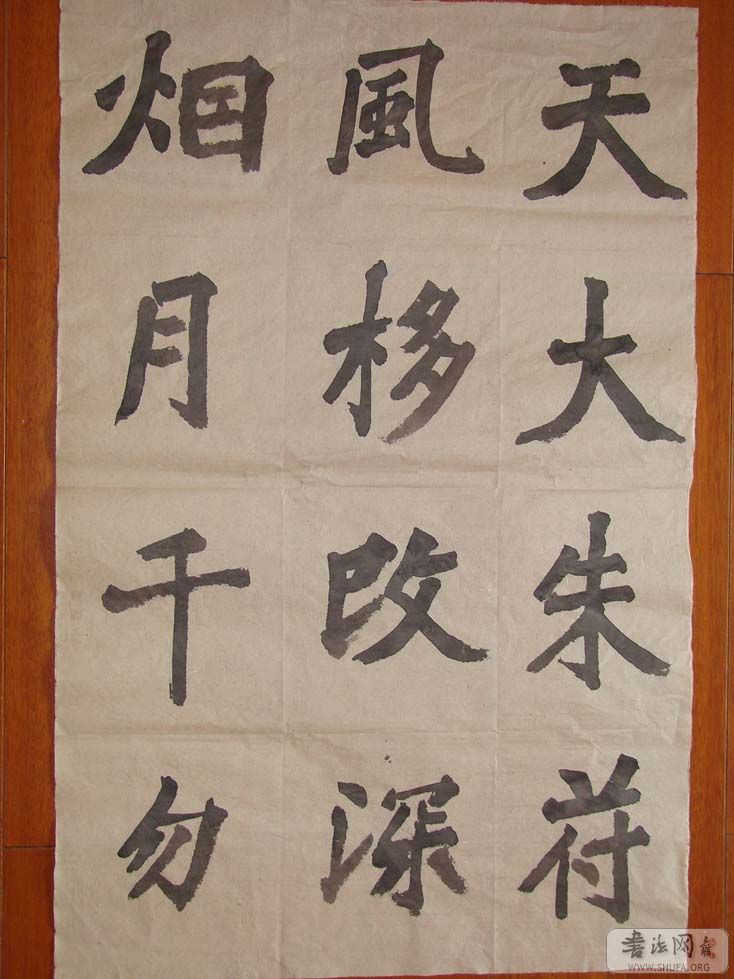 天大朱苻
風移改深
烟月千勿
書法网
WWW.SHUFA.ORG